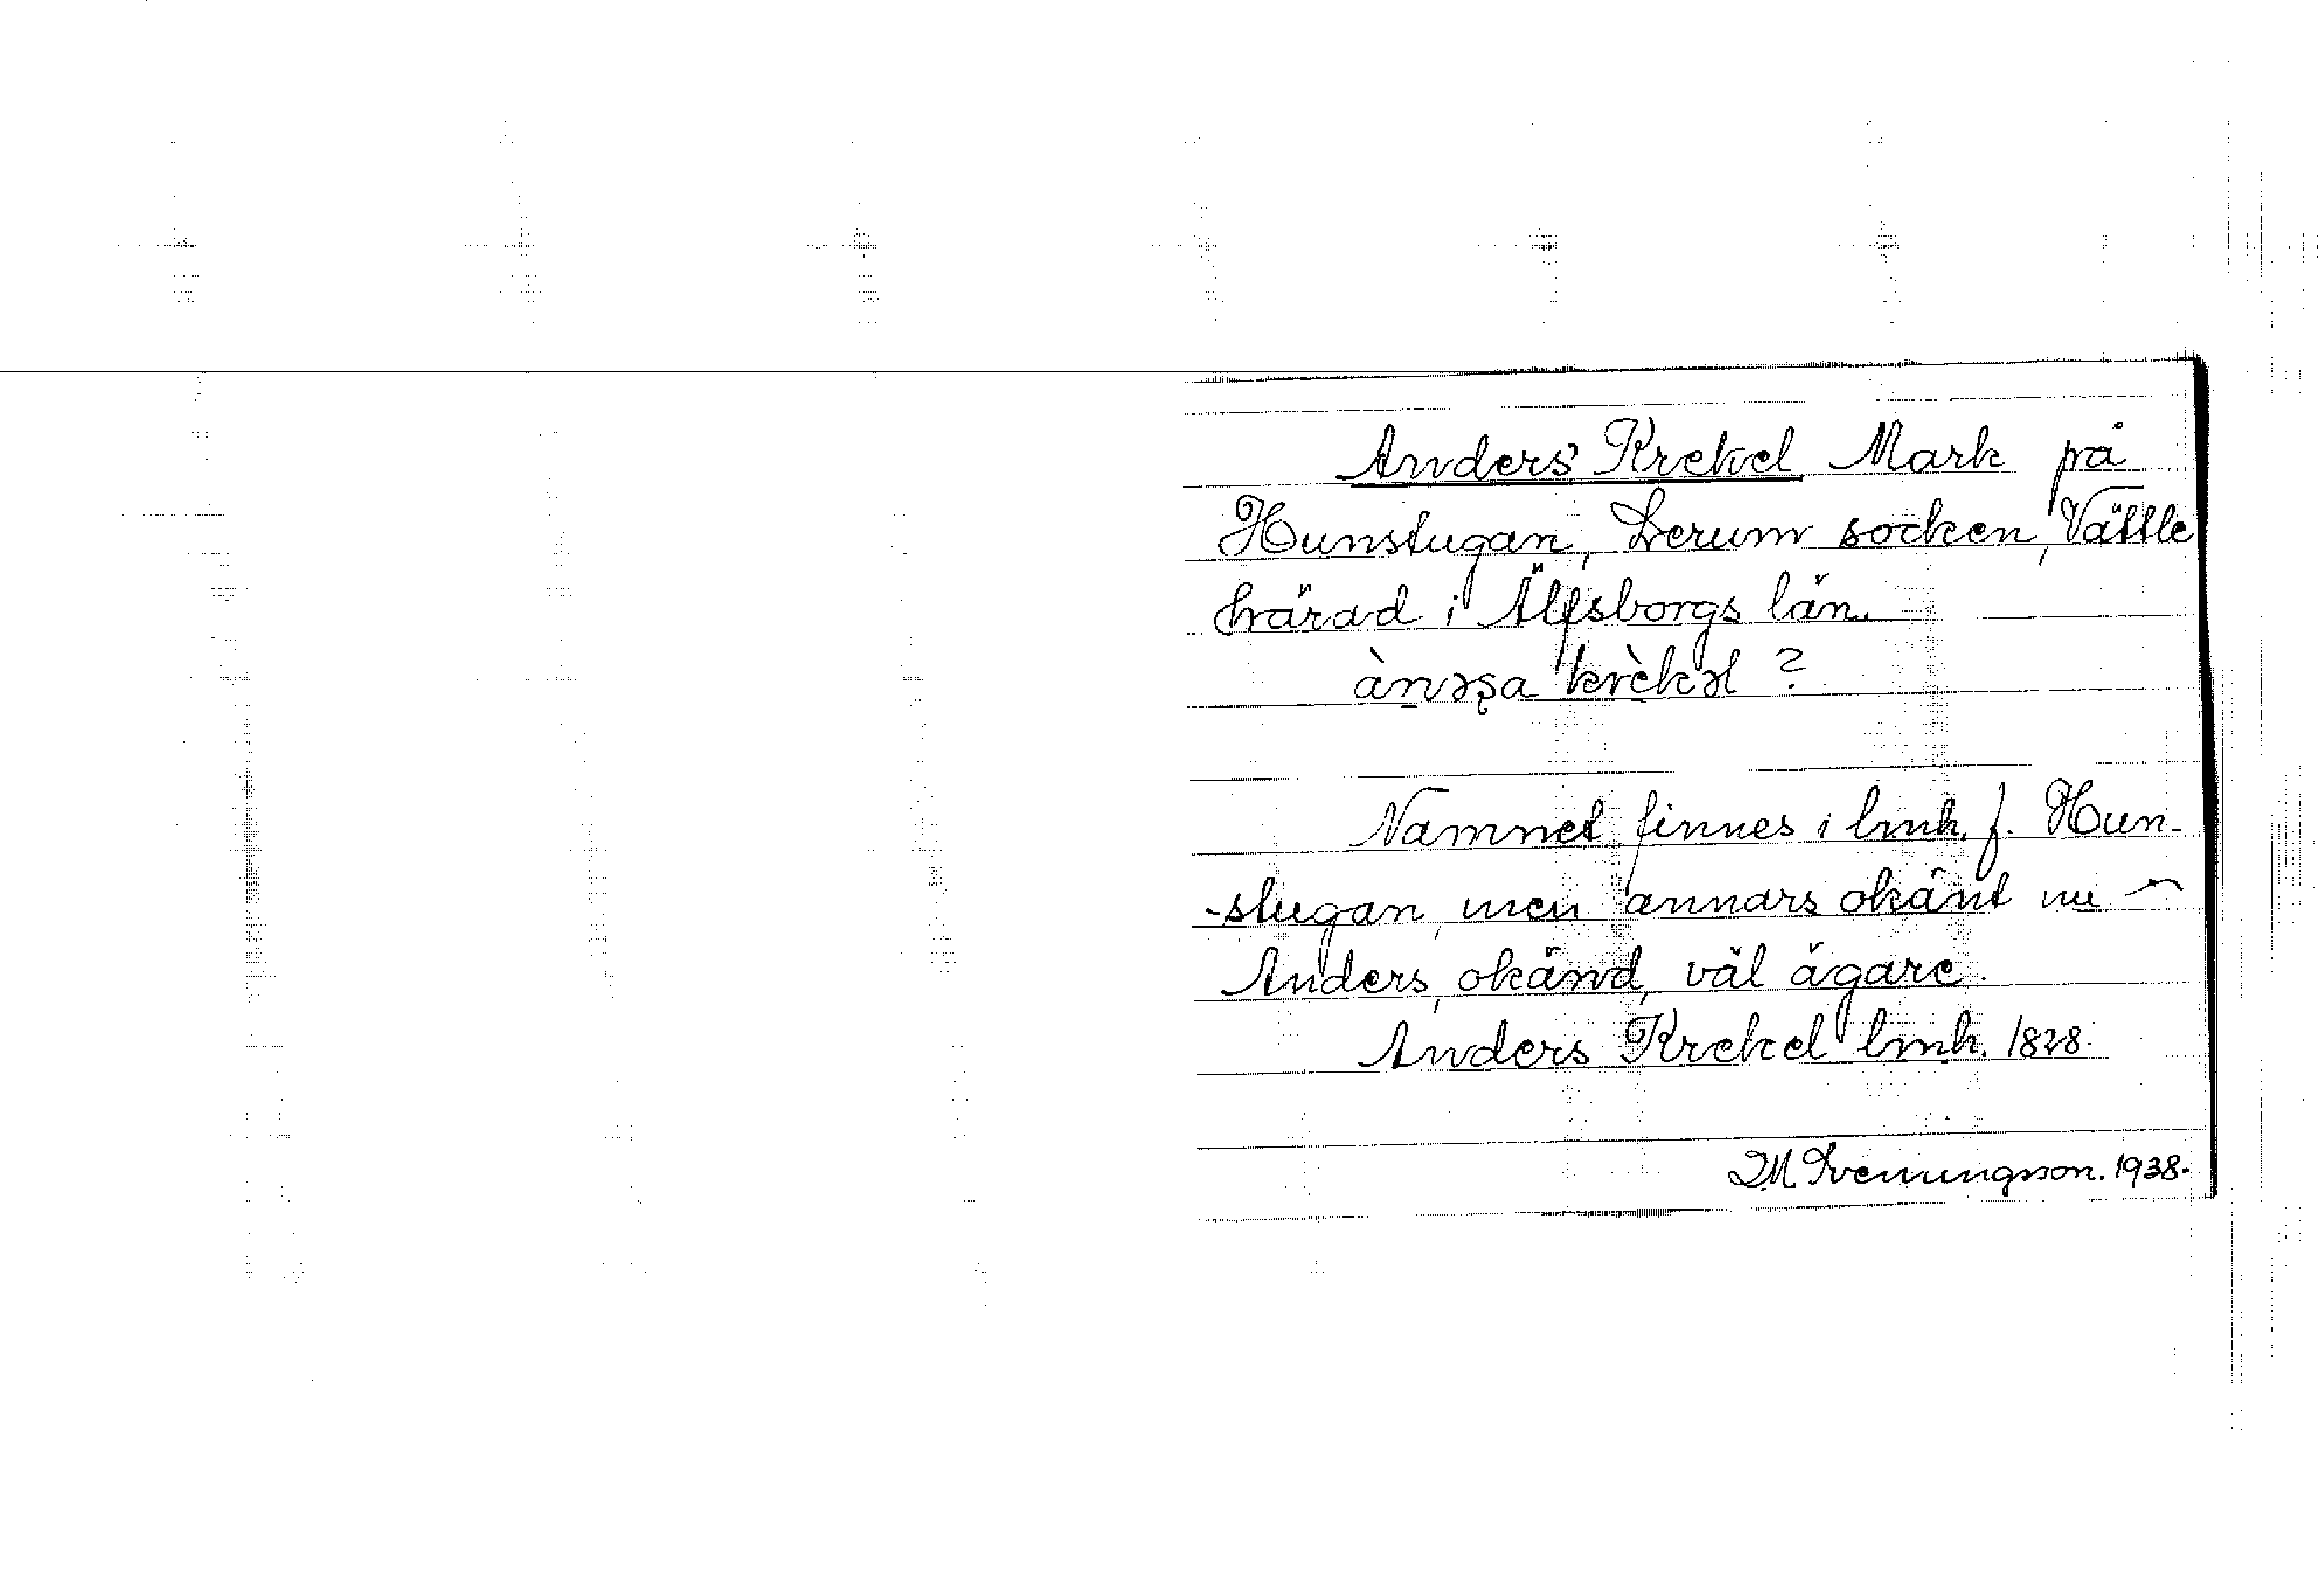 Anders' Krekel Mark på
Hunstugan, Lerum socken, Vättle
härad i Älfsborgs län.
ànəʂa krèkəl ?
Namnet finnes i lmk. f. Hun-
-stugan, men annars okänt nu. —
Anders, okänd, väl ägare.
Anders Krekel lmk. 1828.
Svenungsson. 1938.